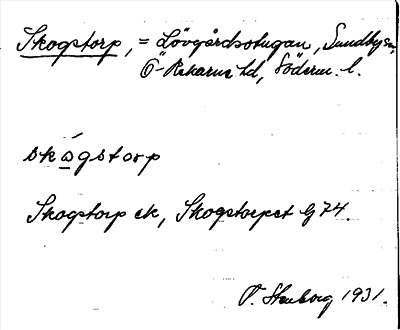 Skogstorp, = Lövgårdsstugan, Sundby sn,
Ö-Rekarne hd, Söderm. l.
skogstorp
Skogstorp ek, Skogstorpet G 74.
P. Stenborg 1931.